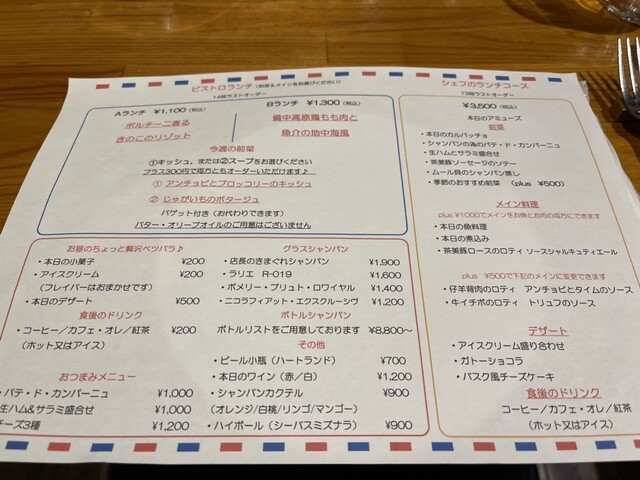 ビストロランチ (前菜&メインをお選びください)
14時ラストオーダー
Aランチ ¥1,100 (税込)
ポルチーニ香る
きのこのリゾット
Bランチ ¥1,300 (税込)
備中高原鶏もも肉と
魚介の地中海風
今週の前菜
①キッシュ、または②スープをお選びください
プラス300円で両方ともオーダーいただけます♪
① アンチョビとブロッコリーのキッシュ
② じゃがいものポタージュ
バゲット付き (お代わりできます)
バター・オリーブオイルのご用意はございません
お昼のちょっと贅沢ベツバラ♪
・本日の小菓子 ¥200
・アイスクリーム ¥200
(フレイバーはおまかせです)
・本日のデザート ¥500
食後のドリンク
・コーヒー/カフェ・オレ/紅茶 ¥200
(ホット又はアイス)
おつまみメニュー
・パテ・ド・カンパーニュ ¥1,000
生ハム&サラミ盛合せ ¥1,000
チーズ3種 ¥1,200
グラスシャンパン
・店長のきまぐれシャンパン ¥1,900
・ラリエ R-019 ¥1,600
・ポメリー・ブリュト・ロワイヤル ¥1,400
・ニコラフィアット・エクスクルーシヴ ¥1,200
ボトルシャンパン
ボトルリストをご用意しております ¥8,800~
その他
・ビール小瓶 (ハートランド) ¥700
・本日のワイン (赤/白) ¥1,200
・シャンパンカクテル ¥900
(オレンジ/白桃/リンゴ/マンゴー)
・ハイボール (シーバスミズナラ) ¥900
シェフのランチコース
13時ラストオーダー
¥3,500 (税込)
本日のアミューズ
前菜
・本日のカルパッチョ
・シャンパンの為のパテ・ド・カンパーニュ
・生ハムとサラミ盛合せ
・茶美豚ソーセージのソテー
・ムール貝のシャンパン蒸し
・季節のおすすめ前菜 (plus ¥500)
メイン料理
plus ¥1000でメインをお魚とお肉の両方にできます
・本日の魚料理
・本日の煮込み
・茶美豚ロースのロティ ソースシャルキュティエール
plus ¥500で下記のメインに変更できます
・仔羊背肉のロティ アンチョビとタイムのソース
・牛イチボのロティ トリュフのソース
デザート
・アイスクリーム盛り合わせ
・ガトーショコラ
・バスク風チーズケーキ
食後のドリンク
コーヒー/カフェ・オレ/紅茶
(ホット又はアイス)